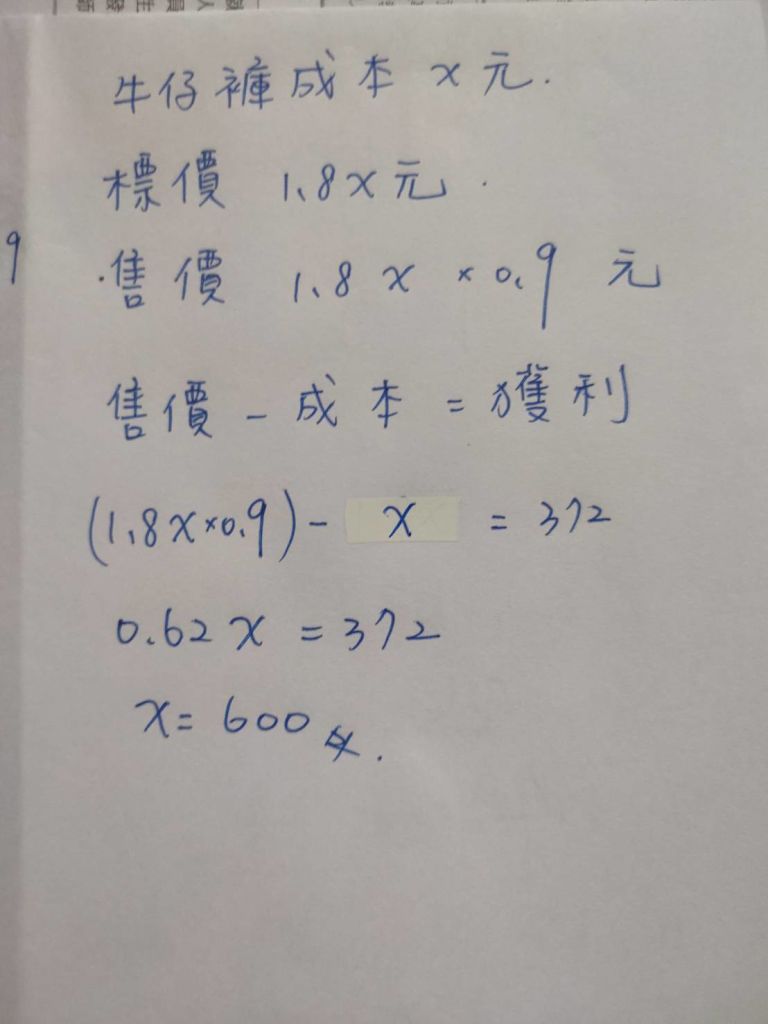 牛仔褲成本 x 元.
標價 1.8x元.
售價 1.8x × 0.9 元
售價 - 成本 = 獲利
(1.8x×0.9) - x = 372
0.62x = 372
x = 600
9